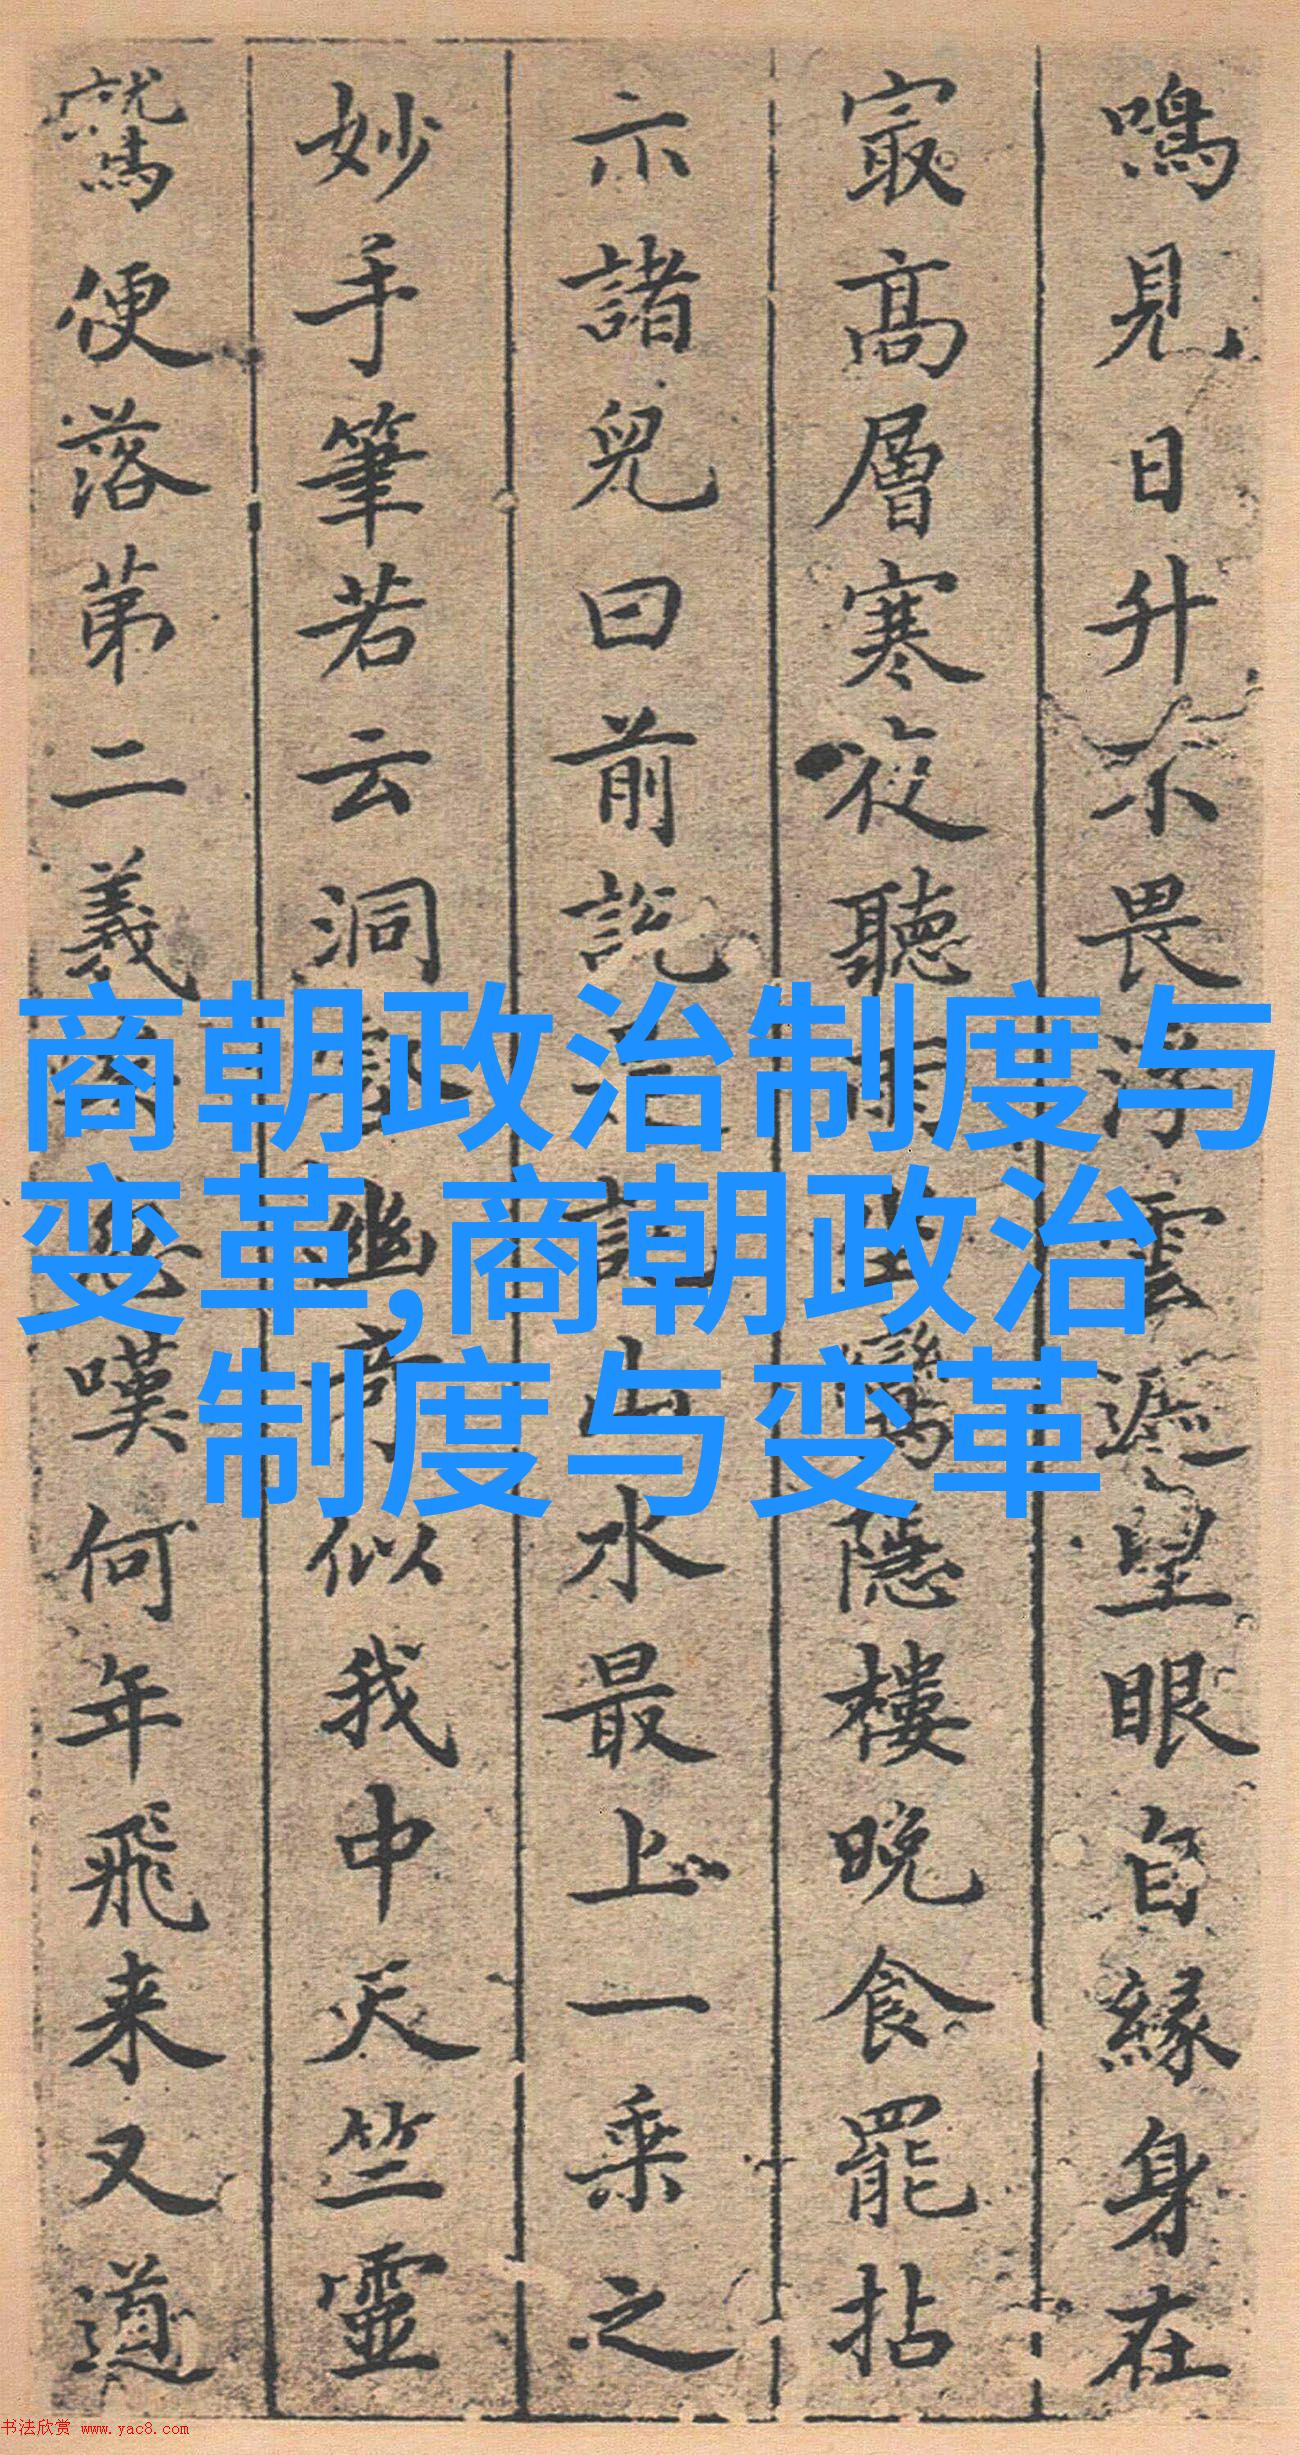 鳴見日升不畏浮雲遮望眼自緣身在
㝡高層寒夜聽雨坐隱樓晚食罷拈
示諸兒曰前說記山水最上一乘之
妙手筆若云洞壑幽奇似我中天竺靈
鷲便落第二義嘆何年飛来又道
商朝政治制度与
变革,商朝政治
制度与变革
书法欣赏 www.yac8.com